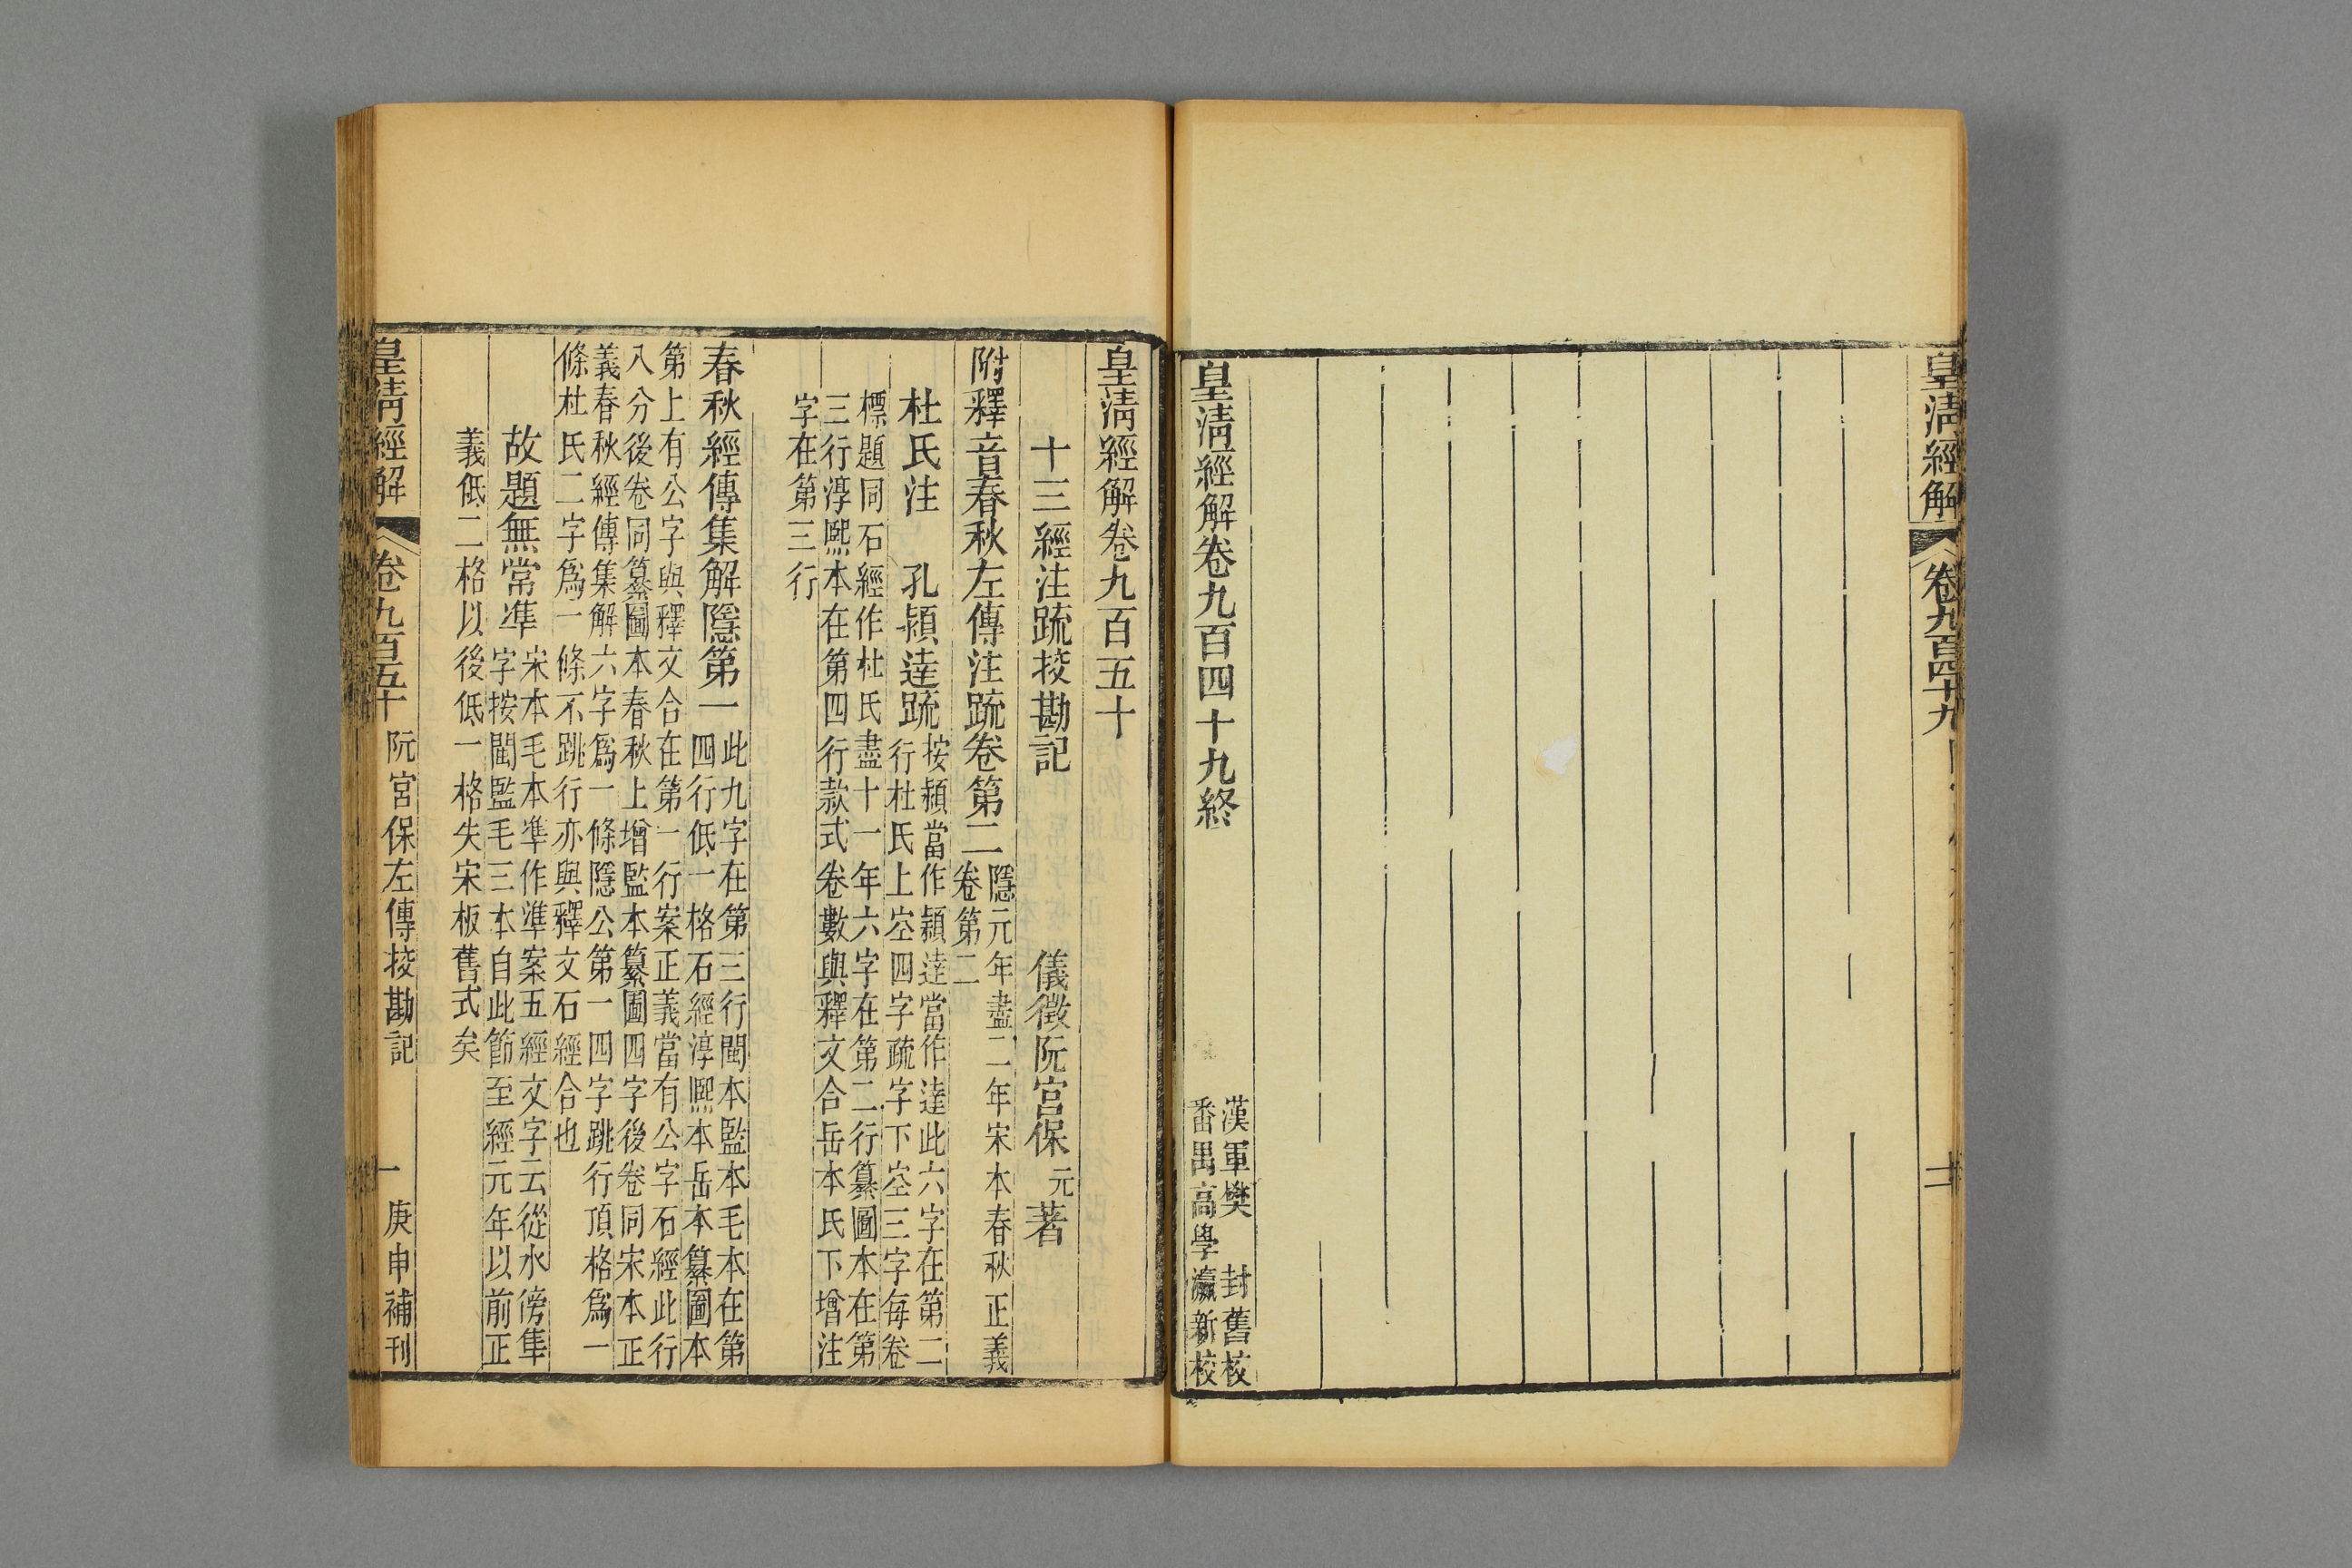 皇淸經解
卷九百四十九
二
皇淸經解卷九百四十九終
漢軍樊 封舊校
番禺高學瀛新校
皇淸經解卷九百五十
十三經注疏挍勘記 儀徵阮宮保元著
附釋音春秋左傳注疏卷第二
隱元年盡二年宋本春秋正義
卷第二
杜氏注 孔頴逹疏
按頴當作穎逹當作達此六字在第二
行杜氏上空四字疏字下空三字每卷
標題同石經作杜氏盡十一年六字在第二行纂圖本在第
三行淳熙本在第四行款式卷數與釋文合岳本氏下增注
字在第三行
春秋經傳集解隱第一
此九字在第三行閩本監本毛本在第
四行低一格石經淳熙本岳本纂圖本
第上有公字與釋文合在第一行案正義當有公字石經此行
八分後卷同纂圖本春秋上增監本纂圖四字後卷同宋本正
義春秋經傳集解六字爲一條隱公第一四字跳行頂格爲一
條杜氏二字爲一條不跳行亦與釋文石經合也
故題無常準
宋本毛本準作準案五經文字云從水傍隼
字按閩監毛三本自此節至經元年以前正
義低二格以後低一格失宋板舊式矣
皇淸經解
卷九百五十
阮宮保左傳挍勘記
一
庚申補刊